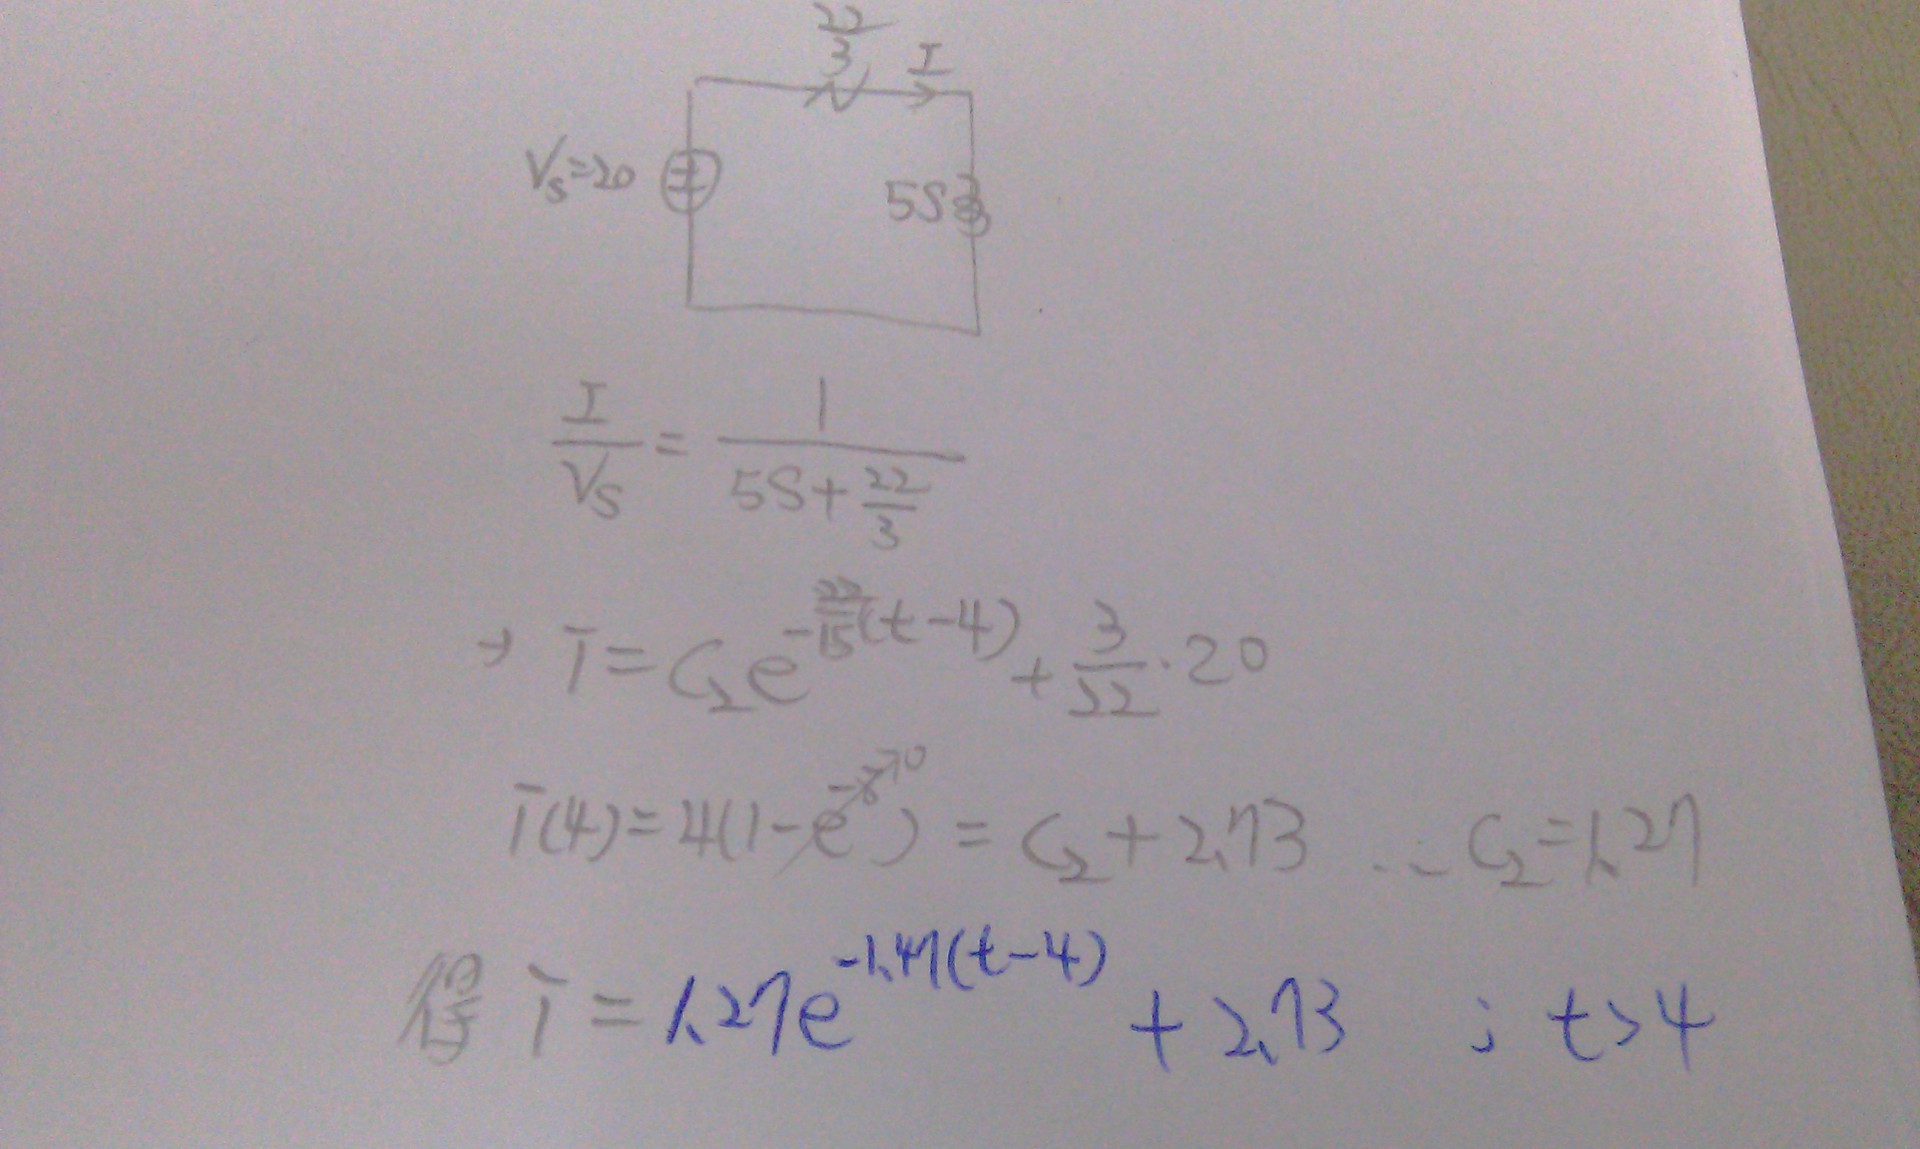 22/3 I
Vs=20
5S
I/Vs = 1/(5S+22/3)
→ I = C₂e^(-22/15(t-4)) + 3/22·20
I(4)=4(1-e^(-8)→0) = C₂+2.73 ∴ C₂=1.27
得 I = 1.27e^(-1.47(t-4)) + 2.73 ; t>4